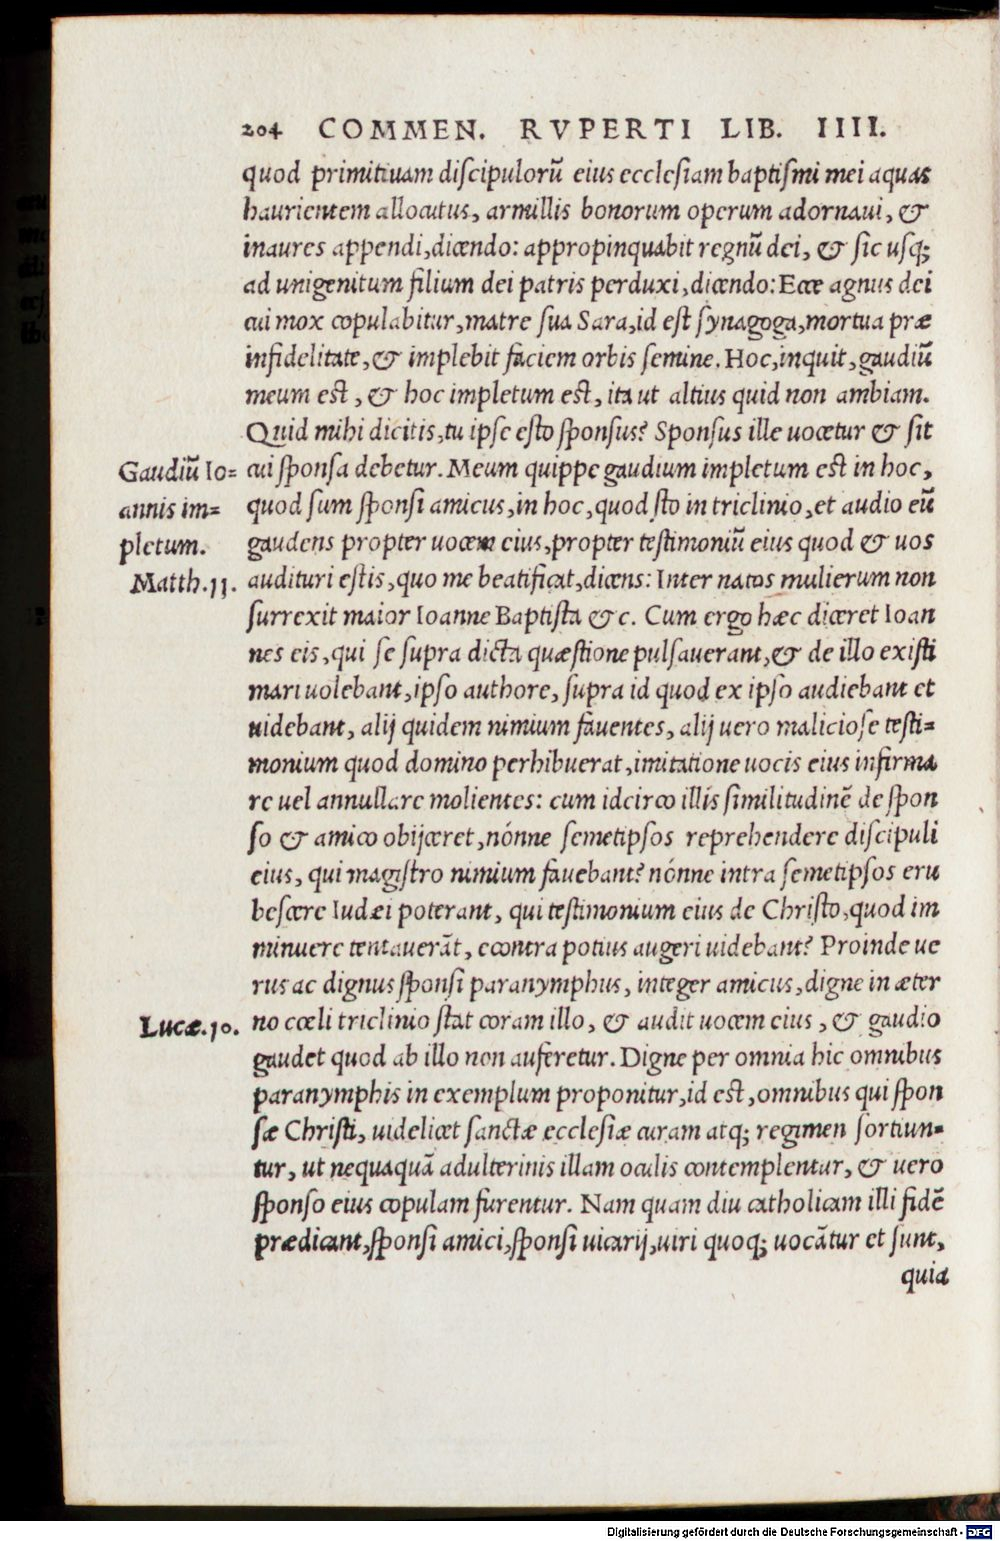 204 COMMEN. RVPERTI LIB. IIII.
quod primitiuam discipulorũ eius ecclesiam baptismi mei aquas
haurientem allocutus, armillis bonorum operum adornaui, &
inaures appendi, dicendo: appropinquabit regnũ dei, & sic usq;
ad unigenitum filium dei patris perduxi, dicendo: Ecce agnus dei
cui mox copulabitur, matre sua Sara, id est synagoga, mortua præ
infidelitate, & implebit faciem orbis semine. Hoc, inquit, gaudiũ
meum est, & hoc impletum est, ita ut altius quid non ambiam.
Quid mihi dicitis, tu ipse esto sponsus? Sponsus ille uocetur & sit
Gaudiũ Io= cui sponsa debetur. Meum quippe gaudium impletum est in hoc,
annis im= quod sum sponsi amicus, in hoc, quod sto in triclinio, et audio eũ
pletum. gaudens propter uocem eius, propter testimoniũ eius quod & uos
Matth.11. audituri estis, quo me beatificat, dicens: Inter natos mulierum non
surrexit maior Ioanne Baptista & c. Cum ergo hæc diceret Ioan
nes eis, qui se supra dicta quæstione pulsauerant, & de illo existi
mari uolebant, ipso authore, supra id quod ex ipso audiebant et
uidebant, alij quidem nimium fauentes, alij uero maliciose testi=
monium quod domino perhibuerat, imitatione uocis eius infirma
re uel annullare molientes: cum idcirco illis similitudinẽ de spon
so & amico obijceret, nónne semetipsos reprehendere discipuli
eius, qui magistro nimium fauebant? nónne intra semetipsos eru
bescere Iudæi poterant, qui testimonium eius de Christo, quod im
minuere tentauerãt, econtra potius augeri uidebant? Proinde ue
rus ac dignus sponsi paranymphus, integer amicus, digne in æter
Lucæ.10. no cœli triclinio stat coram illo, & audit uocem eius, & gaudio
gaudet quod ab illo non auferetur. Digne per omnia hic omnibus
paranymphis in exemplum proponitur, id est, omnibus qui spon
sæ Christi, uidelicet sanctæ ecclesiæ curam atq; regimen sortiun=
tur, ut nequaquã adulterinis illam oculis contemplentur, & uero
sponso eius copulam furentur. Nam quam diu catholicam illi fidẽ
prædicant, sponsi amici, sponsi uicarij, uiri quoq; uocãtur et sunt,
quia
Digitalisierung gefördert durch die Deutsche Forschungsgemeinschaft - DFG